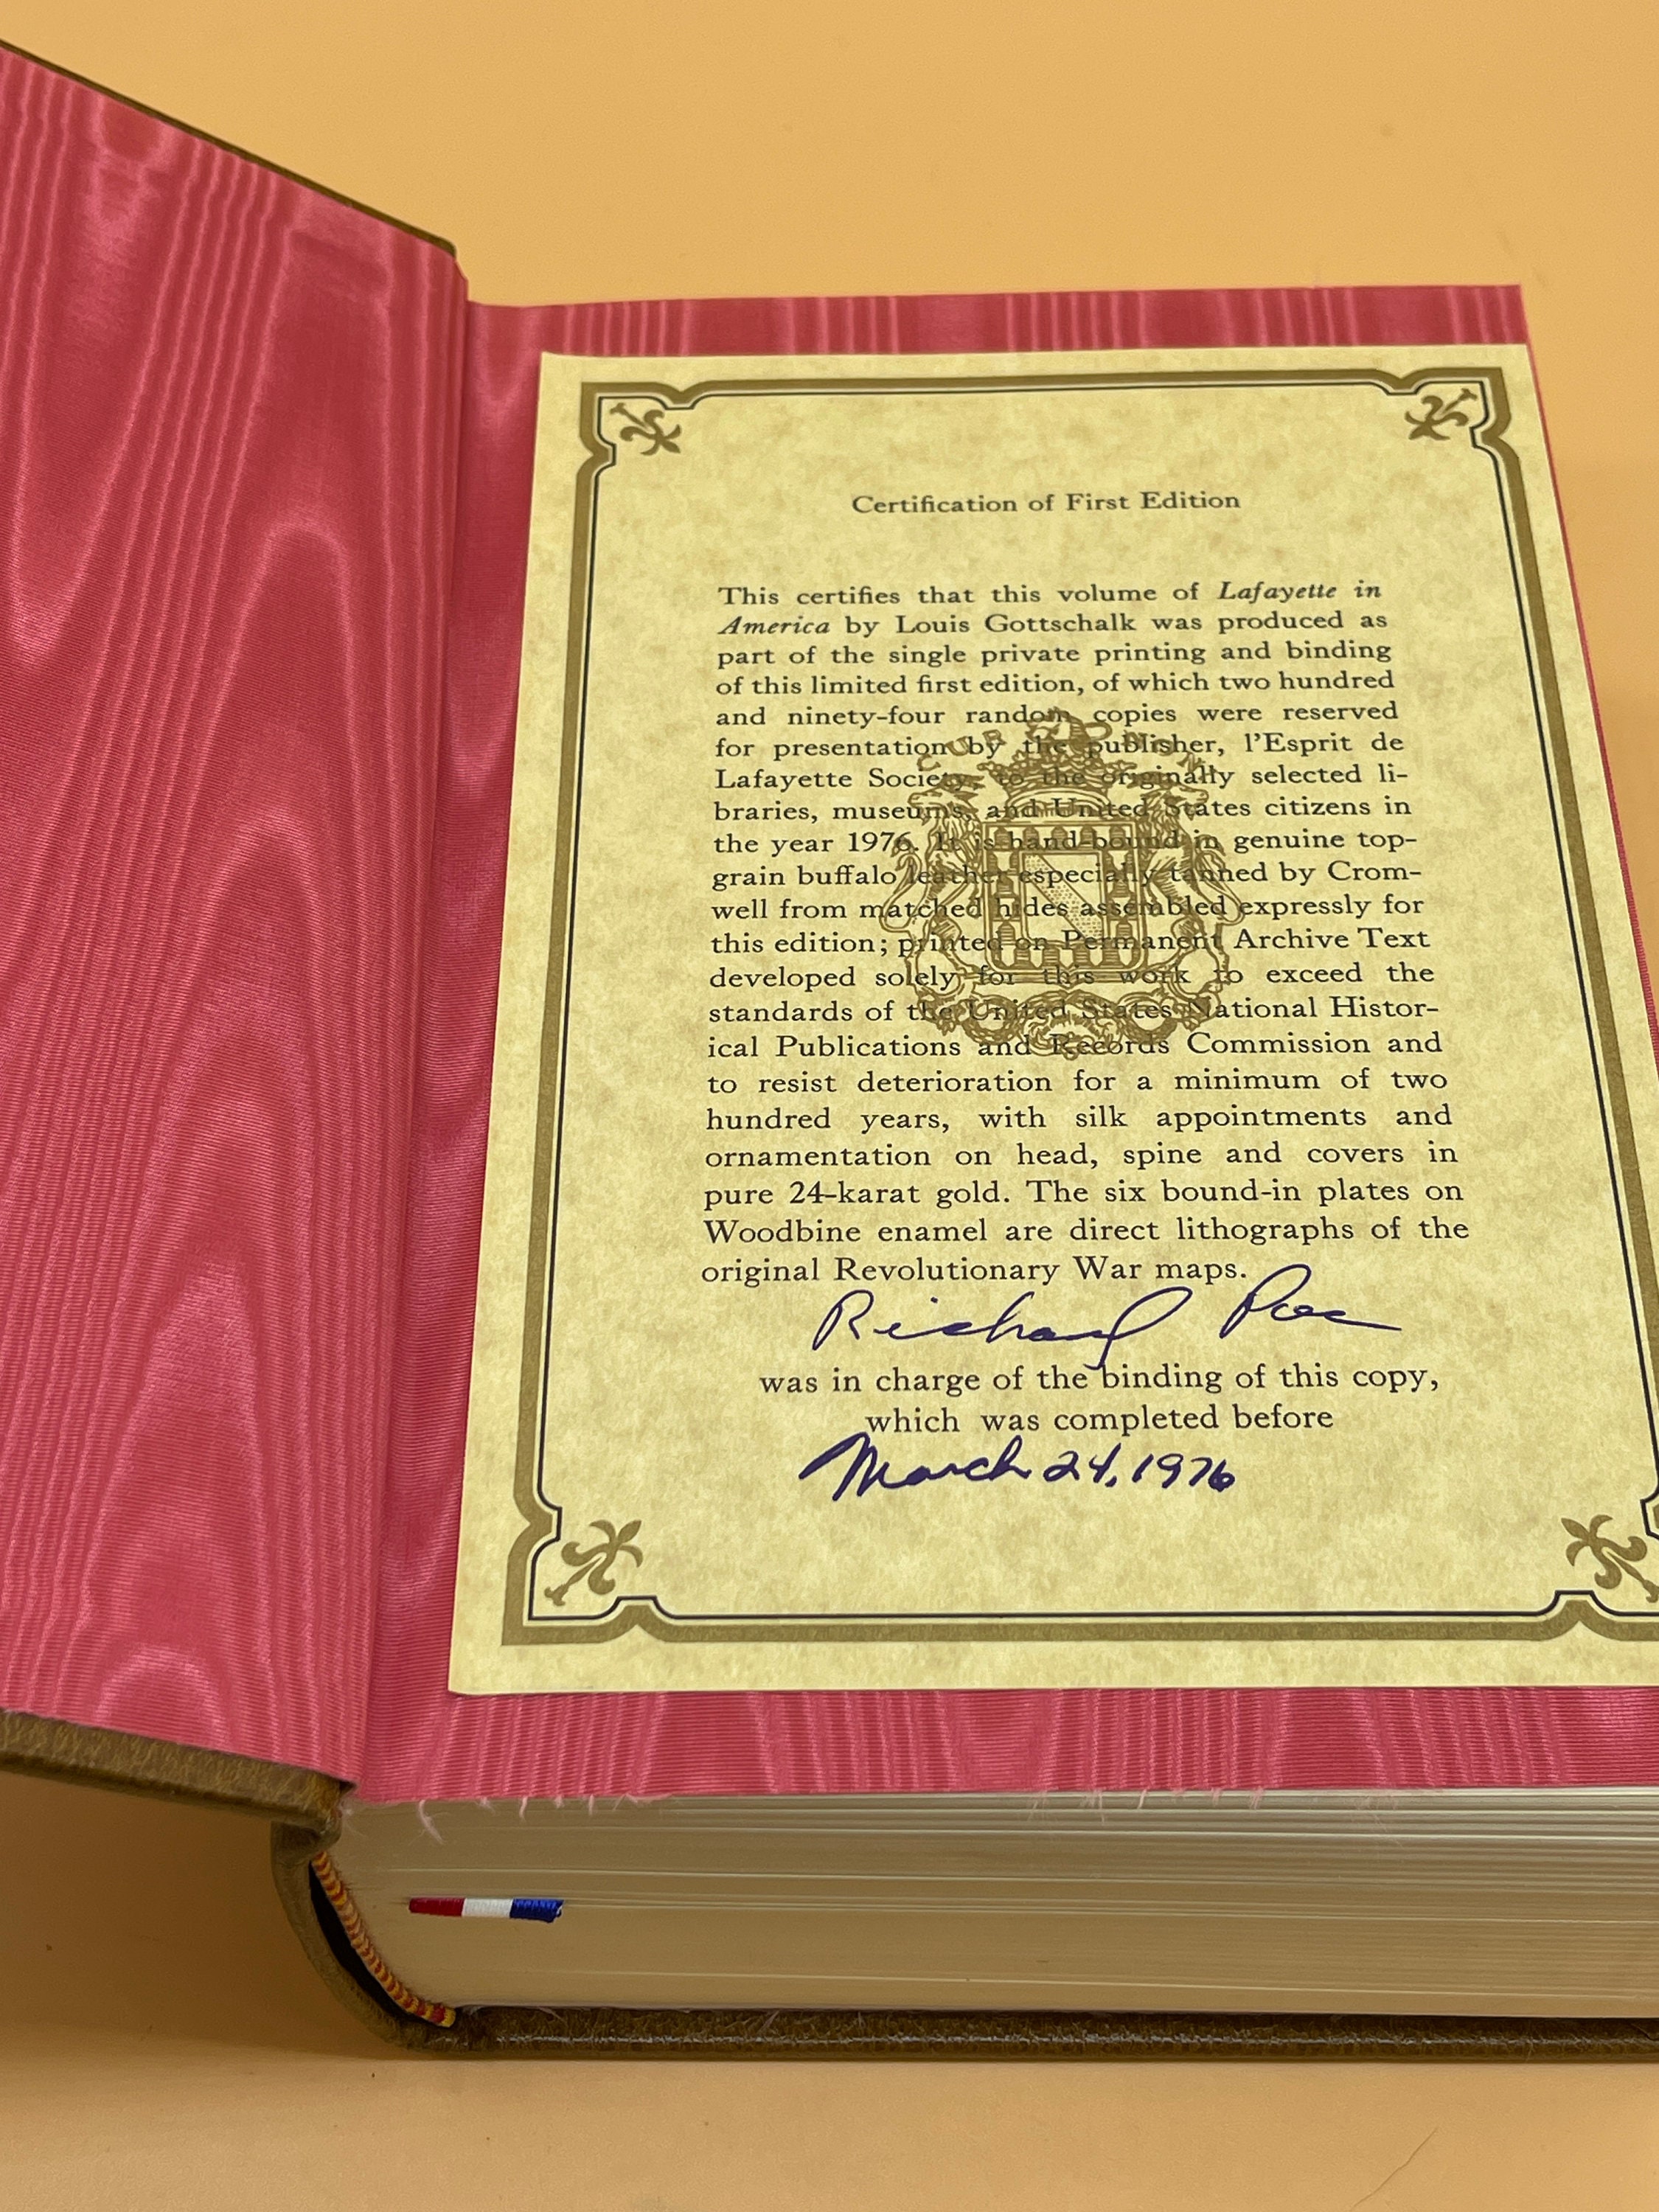 Certification of First Edition
This certifies that this volume of Lafayette in
America by Louis Gottschalk was produced as
part of the single private printing and binding
of this limited first edition, of which two hundred
and ninety-four random copies were reserved
for presentation by the publisher, l'Esprit de
Lafayette Society, to the originally selected li-
braries, museums, and United States citizens in
the year 1976. It is hand-bound in genuine top-
grain buffalo leather especially tanned by Crom-
well from matched hides assembled expressly for
this edition; printed on Permanent Archive Text
developed solely for this work to exceed the
standards of the United States National Histor-
ical Publications and Records Commission and
to resist deterioration for a minimum of two
hundred years, with silk appointments and
ornamentation on head, spine and covers in
pure 24-karat gold. The six bound-in plates on
Woodbine enamel are direct lithographs of the
original Revolutionary War maps.
Richard
was in charge of the binding of this copy,
which was completed before
March 24, 1976